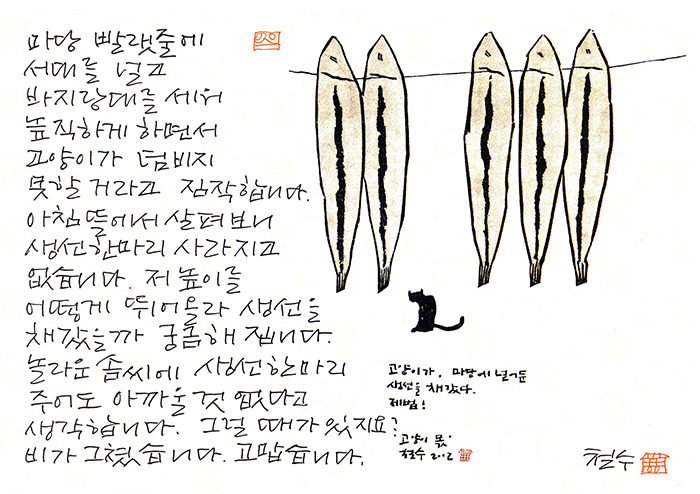 마당 빨랫줄에
서대를 널고
바지랑대를 세워
높직하게 하면서
고양이가 덤비지
못할 거라고 짐작합니다.
아침 뜰에서 살펴보니
생선한마리 사라지고
없습니다. 저 높이를
어떻게 뛰어올라 생선을
채갔을까 궁금해 집니다.
놀라운 솜씨에 생선한마리
주어도 아까울 것 없다고
생각합니다. 그럴 때가 있지요?
비가 그쳤습니다. 고맙습니다.
고양이가, 마당에 널어둔
생선을 채갔다.
제법!
고양이 몫
철수 2012
철수